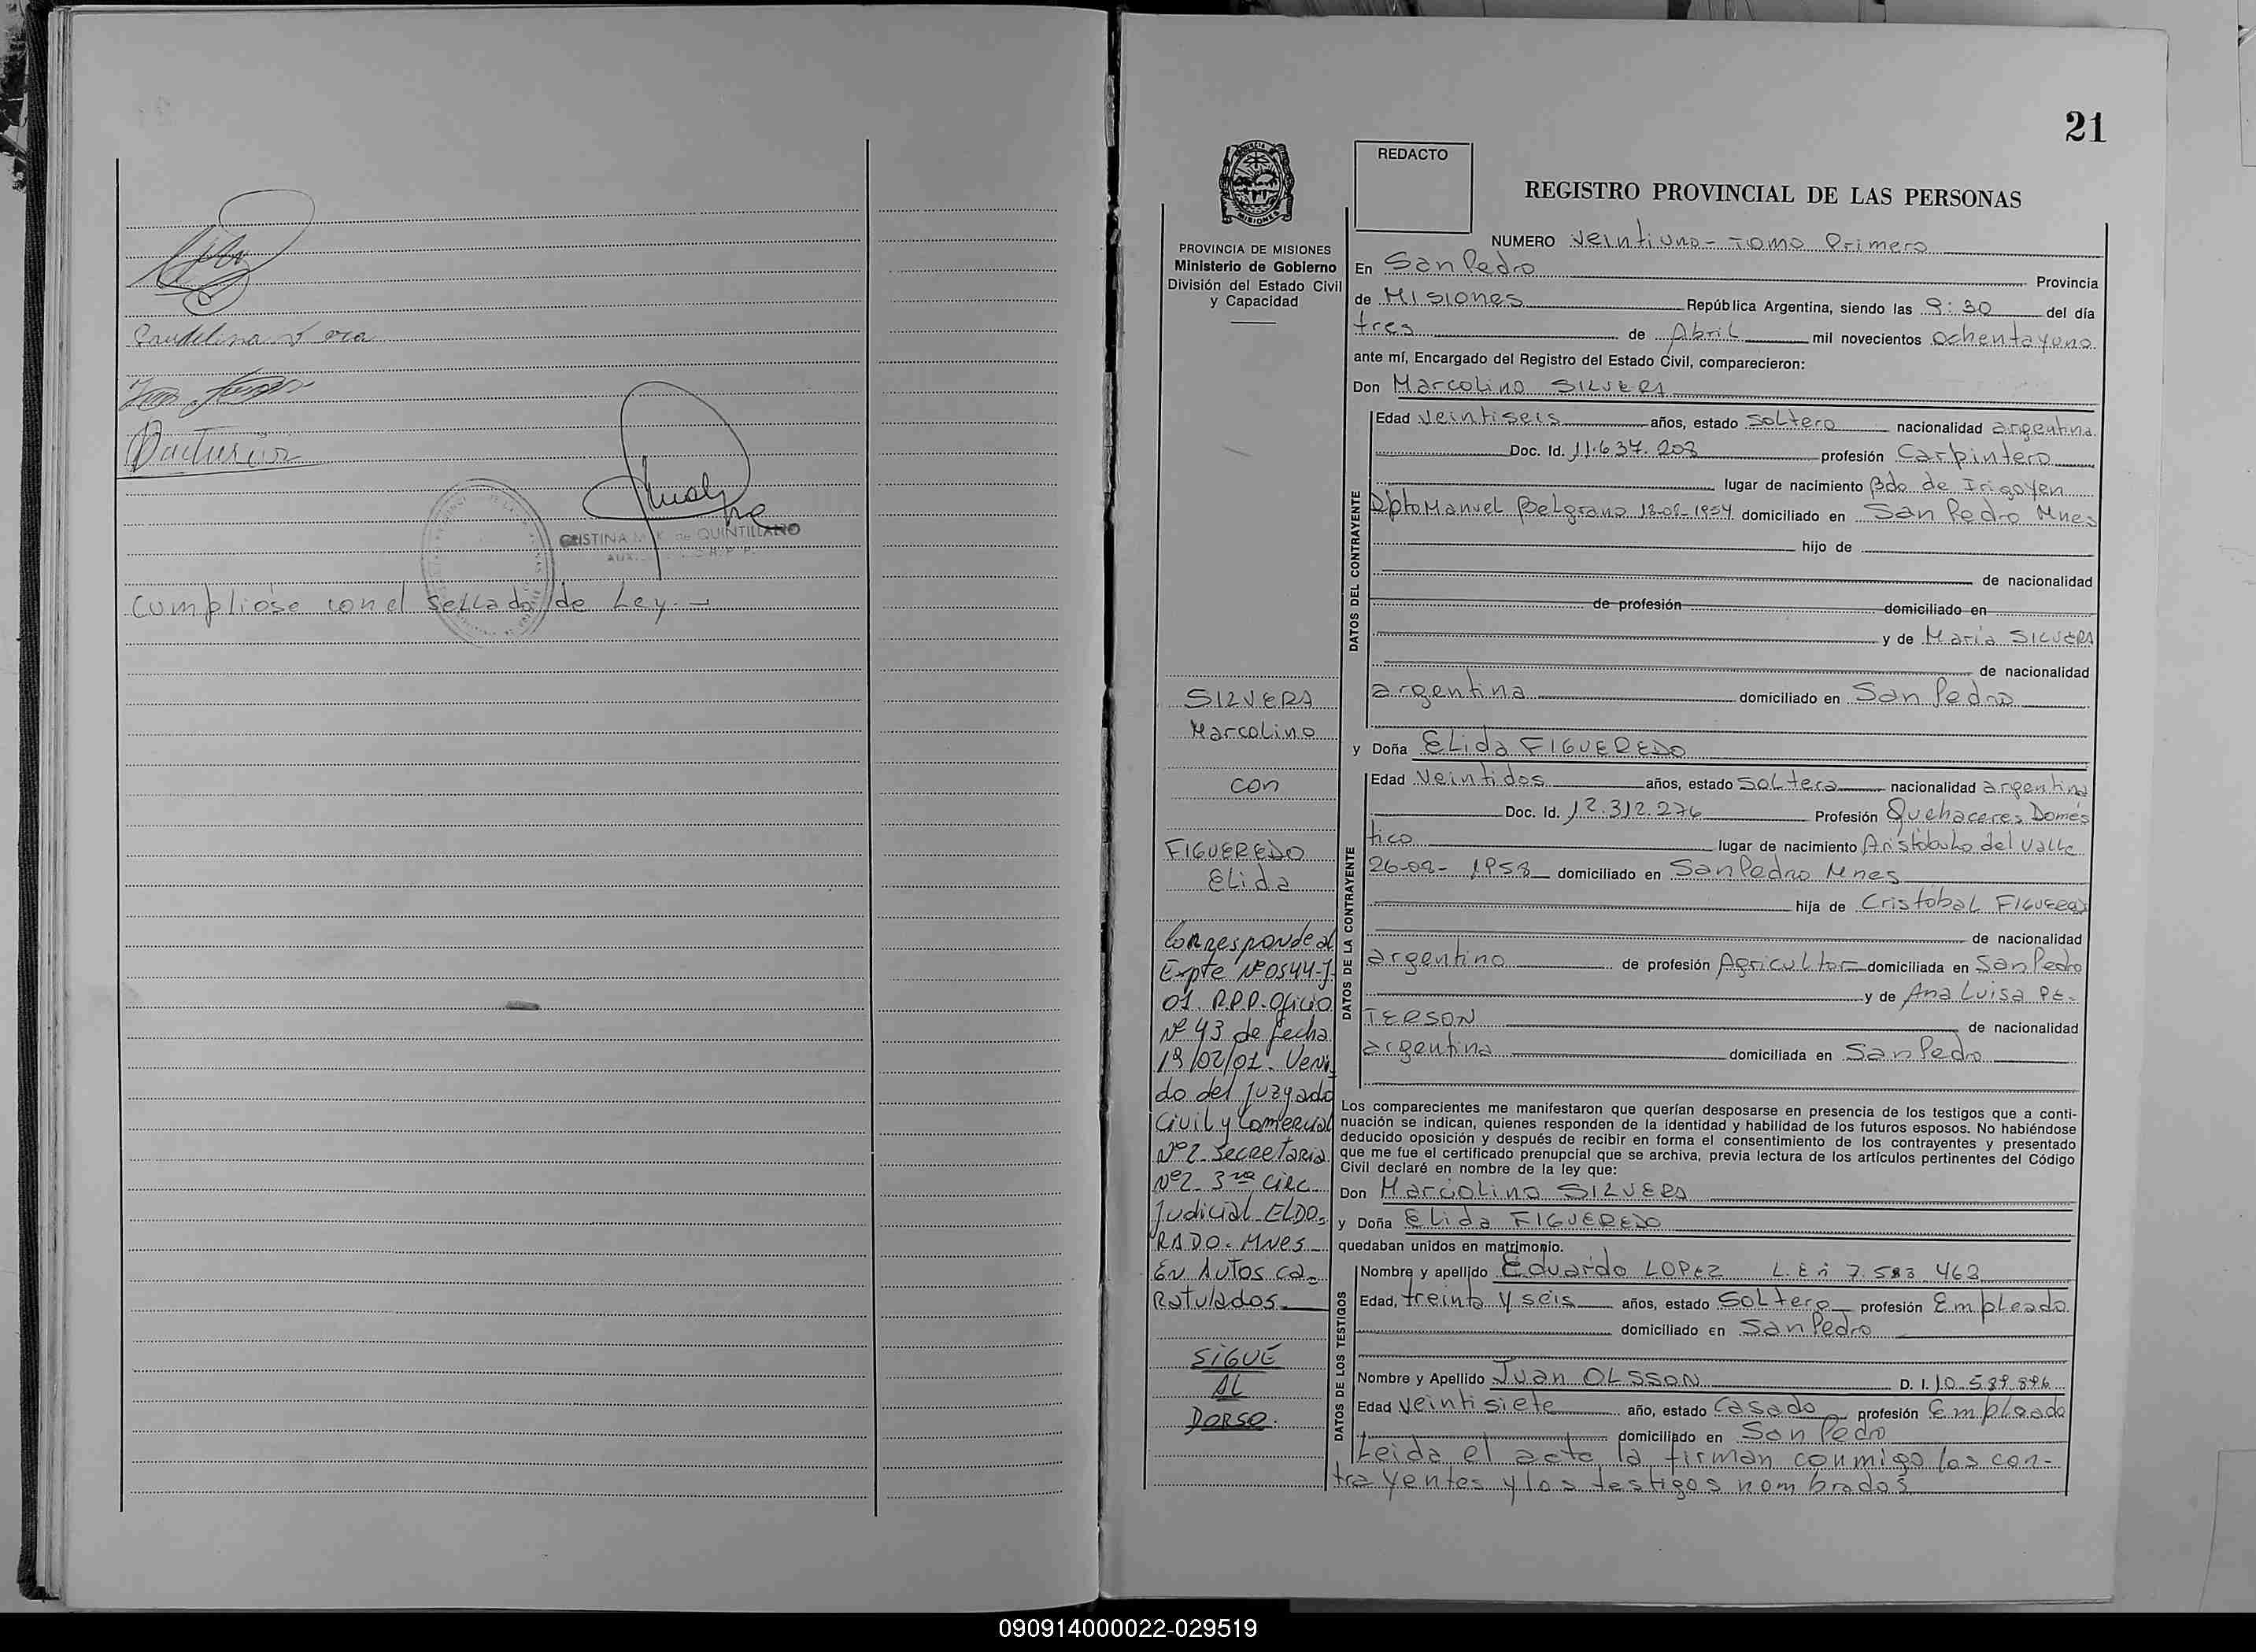 Cumplióse con el Sellado de Ley.-
CRISTINA M. K. de QUINTILLANO
21
REDACTO
REGISTRO PROVINCIAL DE LAS PERSONAS
PROVINCIA DE MISIONES
Ministerio de Gobierno
División del Estado Civil
y Capacidad
NUMERO Veintiuno - Tomo Primero
En San Pedro Provincia
de Misiones República Argentina, siendo las 9:30 del día
tres de Abril mil novecientos ochentayuno
ante mí, Encargado del Registro del Estado Civil, comparecieron:
Don Marcolino SILVERA
DATOS DEL CONTRAYENTE
Edad Veintiseis años, estado Soltero nacionalidad argentina
Doc. Id. 11.637.208 profesión Carpintero
lugar de nacimiento Bdo de Irigoyen
Dpto Manuel Belgrano domiciliado en San Pedro Mnes
hijo de
de nacionalidad
de profesión domiciliado en
y de María SILVERA
de nacionalidad
argentina domiciliado en San Pedro
y Doña Elida FIGUEREDO
DATOS DE LA CONTRAYENTE
Edad Veintidos años, estado Soltera nacionalidad argentina
Doc. Id. 12.312.276 Profesión Quehaceres Domés
tico lugar de nacimiento Aristóbulo del Valle
26-08-1958 domiciliado en San Pedro Mnes
hija de Cristobal FIGUEREDO
de nacionalidad
argentino de profesión Agricultor domiciliada en San Pedro
y de Ana Luisa PE-
TERSON de nacionalidad
argentina domiciliada en San Pedro
Los comparecientes me manifestaron que querían desposarse en presencia de los testigos que a conti-
nuación se indican, quienes responden de la identidad y habilidad de los futuros esposos. No habiéndose
deducido oposición y después de recibir en forma el consentimiento de los contrayentes y presentado
que me fue el certificado prenupcial que se archiva, previa lectura de los artículos pertinentes del Código
Civil declaré en nombre de la ley que:
Don Marcolino SILVERA
y Doña Elida FIGUEREDO
quedaban unidos en matrimonio.
DATOS DE LOS TESTIGOS
Nombre y apellido Eduardo LOPEZ L.E. n 7.583.463
Edad, treinta y seis años, estado Soltero profesión Empleado
domiciliado en San Pedro
Nombre y Apellido Juan OLSSON D. I. 10.589.896
Edad Veintisiete año, estado Casado profesión Empleado
domiciliado en San Pedro
Leida el acta la firman conmigo los con-
trayentes y los testigos nombrados
SILVERA
Marcolino
con
FIGUEREDO
Elida
Corresponde al
Expte Nº 0544-J-
01. R.P.P. Oficio
Nº 43 de fecha
19/02/01. Veni-
do del Juzgado
Civil y Comercial
Nº 2 Secretaria
Nº 2 3ra Circ.
Judicial ELDO-
RADO - Mnes
En Autos Ca-
Ratulados
SIGUE
AL
DORSO.
090914000022-029519